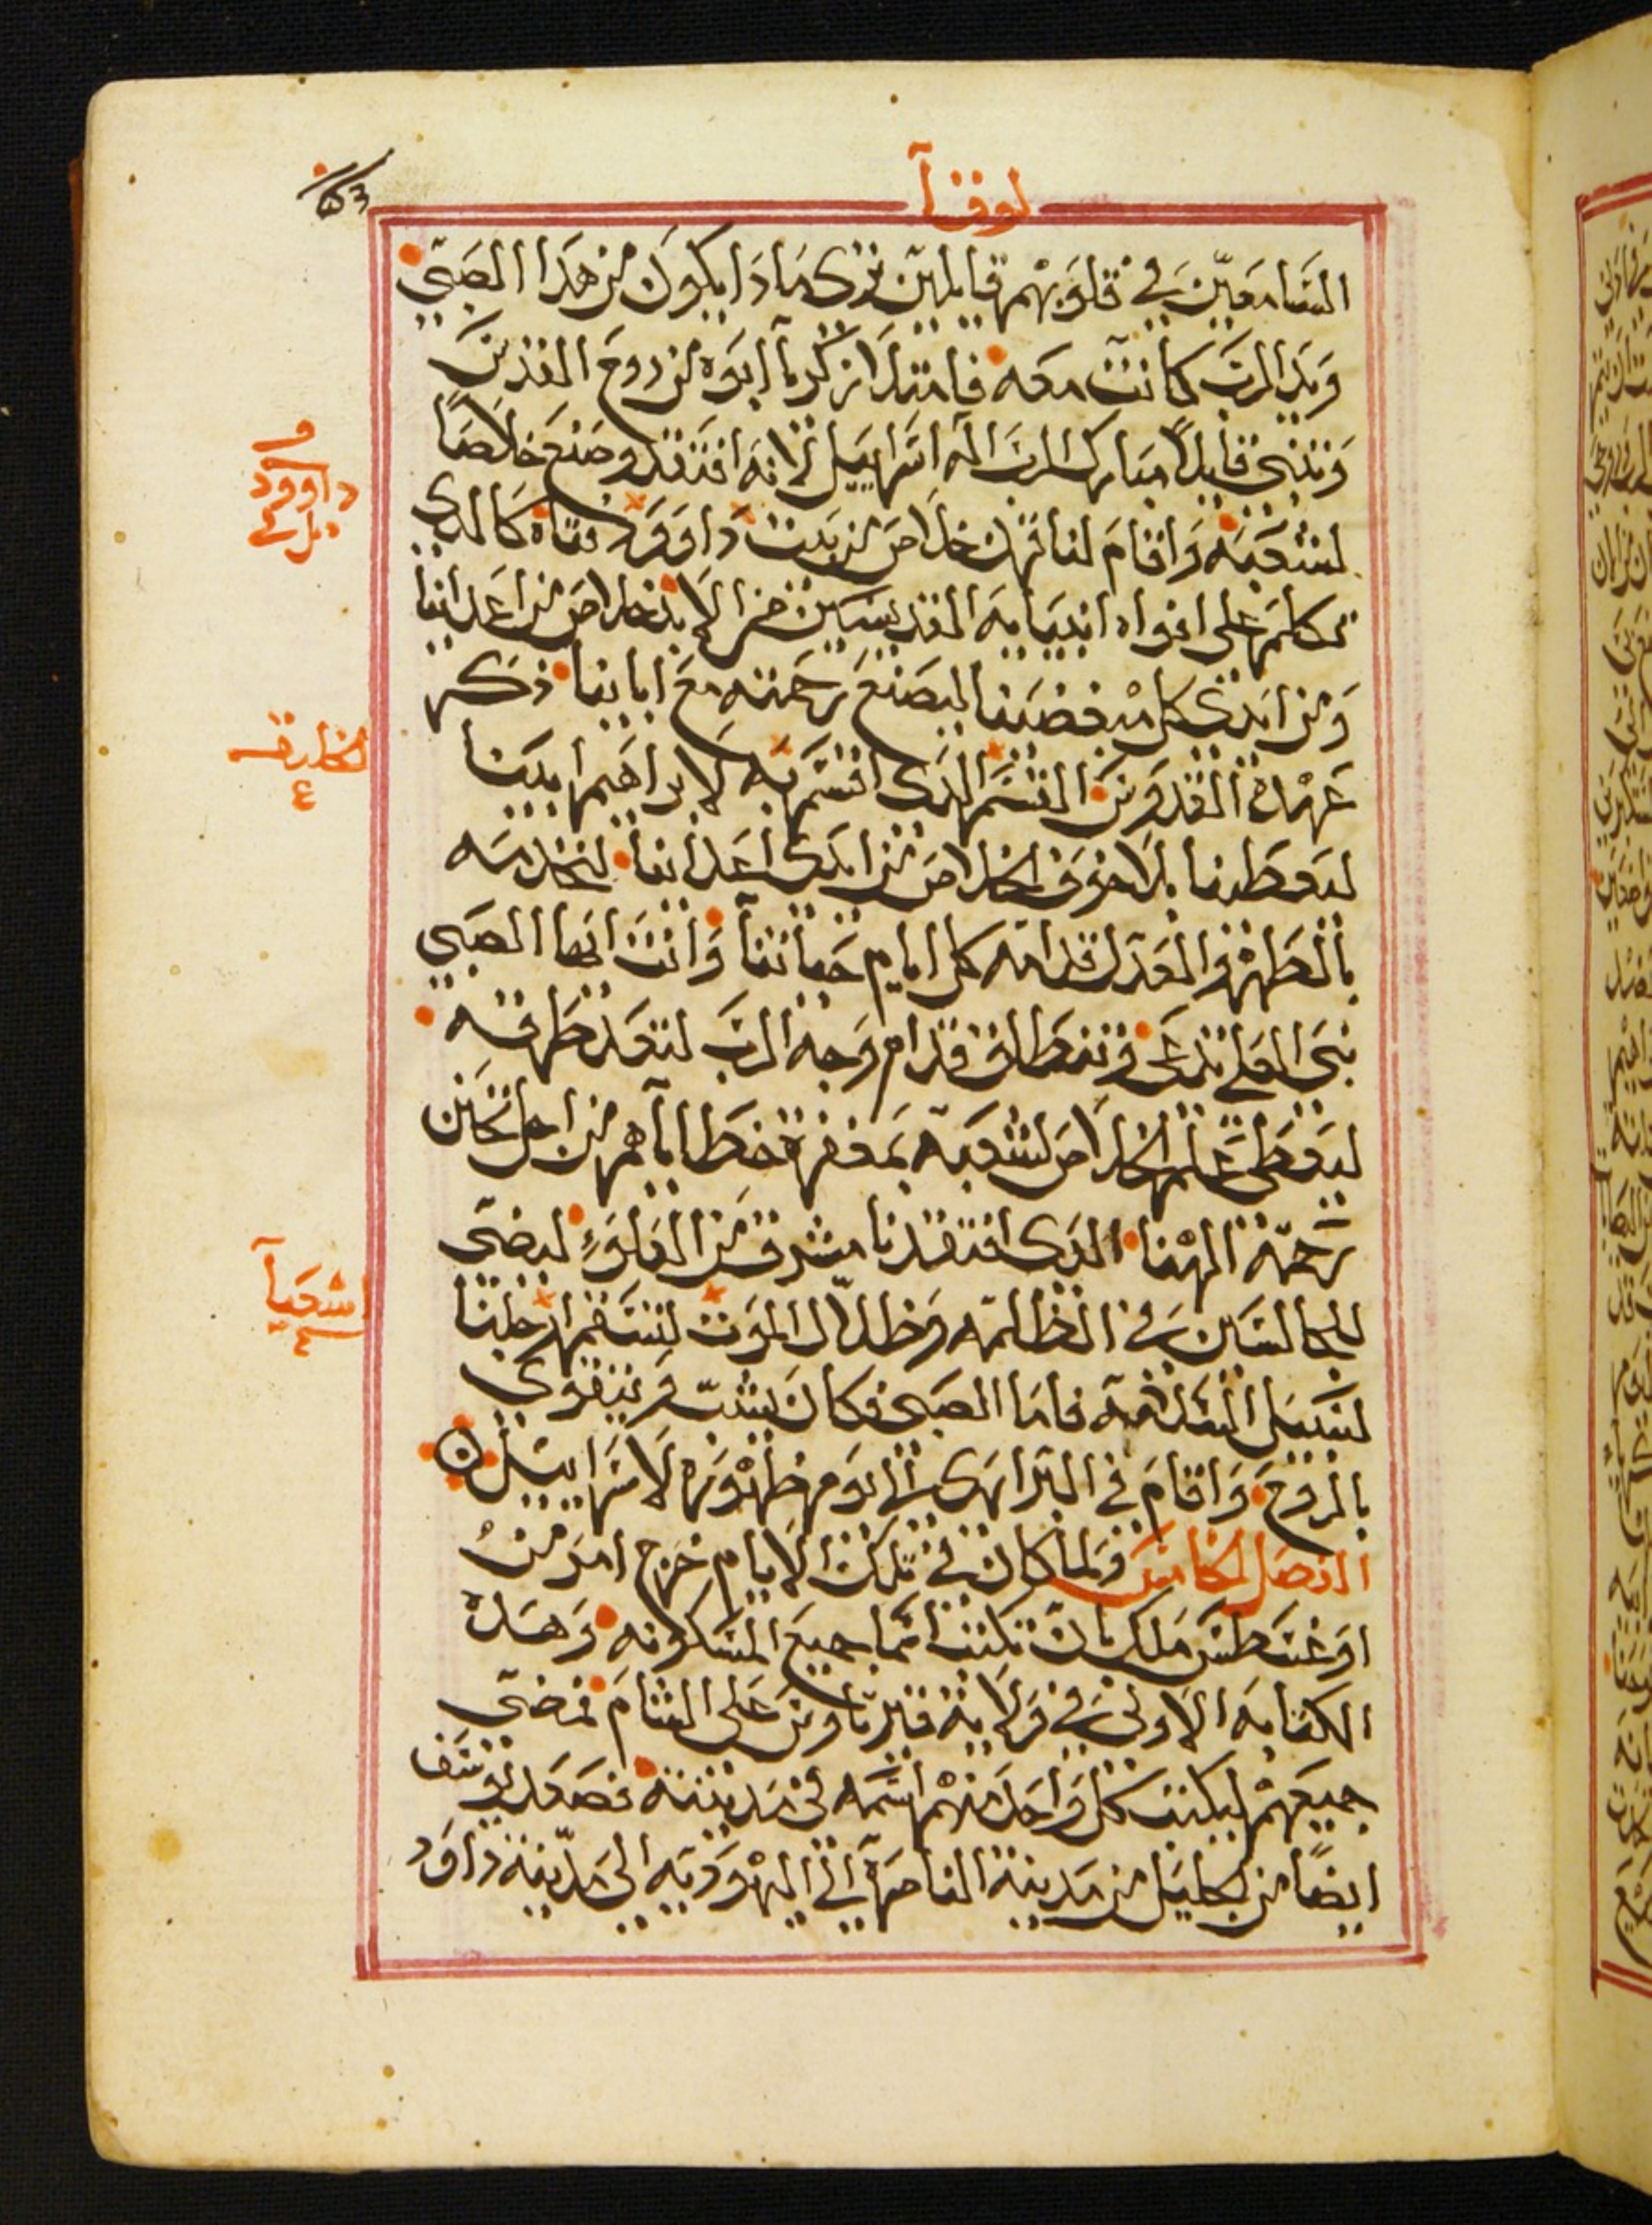 لوقا
السامعين في قلوبهم قايلين ترى ماذا يكون من هذا الصبي
ويد الرب كانت معه فامتلا زكريا ابوه من روح القدس
وتنبى قايلا مبارك الرب اله اسراييل لانه افتقد وصنع خلاصا
لشعبه واقام لنا قرن خلاص من بيت داوود فتاه كالدي
تكلم على افواه انبيايه القديسين من الابد خلاص من اعداينا
ومن ايدي كل مبغضينا ليصنع رحمته مع اباينا ذكر
عهده القدوس القسم الدى اقسم به لابراهيم ابينا
ليعطينا بلا خوف الخلاص من ايدى اعداينا لنخدمه
بالطهر والعدل قدامه كل ايام حياتنا وانت ايها الصبي
نبى العلي تدعى وتنطلق قدام وجه الرب لتعد طرقه
ليعطى علم الخلاص لشعبه بمغفرة خطاياهم من اجل تحنن
رحمة الهنا الدى افتقدنا مشرق من العلو ليضي
للجالسين في الظلمه وظلال الموت لتستقيم ارجلنا
لسبيل السلامه فاما الصبى فكان يشب ويتقوى
بالروح واقام في البراري الى يوم ظهوره لاسراييل
الفصل الخامس ولما كان في تلك الايام خرج امر من
اوغسطس ملك بان تكتتب جميع المسكونه وهذه
الكتابه الاولى في ولاية قيرينوس على الشام فمضى
جميعهم ليكتتب كل واحد منهم اسمه في مدينته فصعد يوسف
ايضا من الجليل من مدينة الناصرة الى اليهوديه الى مدينة داود
داوود
اشعيا